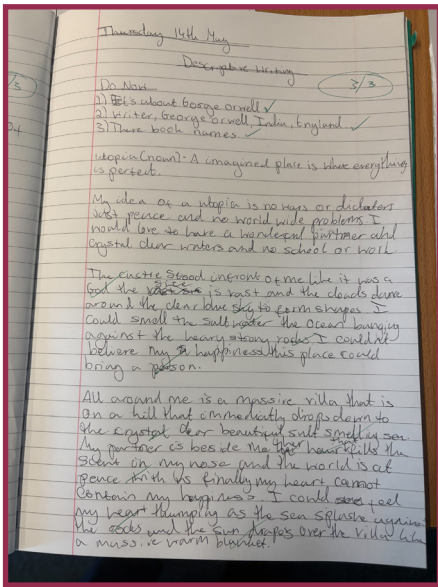 Thursday 14th May
Descriptive Writing
3/3
Do Now
1) It's about George orwell ✓
2) Writer, George orwell, India, England ✓
3) There book names. ✓
utopia (noun) - A imagined place is where everything
is perfect.
My idea of a utopia is no wars or dictators
just peace and no world wide problems. I
would love to have a wonderful partner and
crystal clear waters and no school or work.
The castle stood infront of me like it was a
God the size is vast and the clouds dance
around the clear blue sky to form shapes. I
could smell the salt water the ocean banging
against the heavy strong rocks I couldn't
believe my happiness this place could
bring a person.
All around me is a massive villa that is
on a hill that immediatly drops down to
the crystal clear beautiful salt smelling sea
My partner is beside me fills the
scent in my nose and the world is at
peace with us finally my heart cannot
contain my happiness. I could feel
my heart thumping as the sea splashe
the rocks and the sun drapes over the villa like
a massive warm blanket.